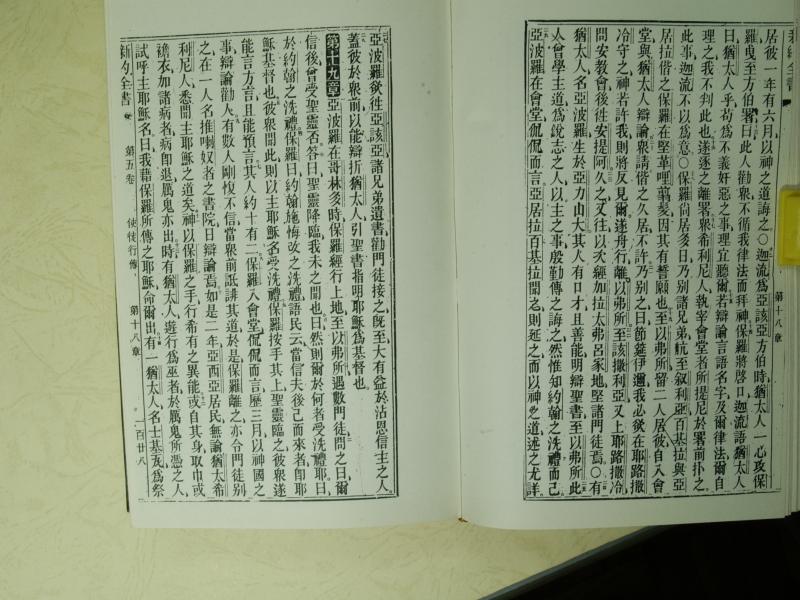 新約全書 第十八章
居彼一年有六月以神之道誨之〇迦流為亞該亞方伯時猶太人一心攻保
羅曳至方伯署曰此人勸衆不循我律法而拜神保羅將啓口迦流語猶太人
曰猶太人乎苟為不義奸惡之事理宜聽爾若辯論言語名字及爾律法爾自
理之我不判此也遂逐之離署衆希利尼人執宰會堂者所提尼於署前扑之
此事迦流不以為意〇保羅尚居多日乃別諸兄弟航至叙利亞百基拉與亞
居拉偕之保羅在堅革哩薙髮因其有誓願也至以弗所留二人居彼自入會
堂與猶太人辯論衆請偕之久居不許乃別之日節筵伊邇我必欲在耶路撒
冷守之神若許我則將反見爾遂舟行離以弗所至該撒利亞又上耶路撒冷
問安教會後往安提阿久之又往以次經加拉太弗呂家地堅諸門徒焉〇有
猶太人名亞波羅生於亞力山大其人有口才且善能明辯聖書至以弗所此
人曾學主道為銳志之人以主之事殷勤傳之誨之然惟知約翰之洗禮而已
亞波羅在會堂侃侃而言亞居拉百基拉聞之則延之而以神之道述之尤詳
亞波羅欲往亞該亞諸兄弟遺書勸門徒接之旣至大有益於沾恩信主之人
蓋彼於衆前以能辯折猶太人引聖書指明耶穌為基督也
第十九章亞波羅在哥林多時保羅經行上地至以弗所遇數門徒問之曰爾
信後曾受聖靈否答曰聖靈降臨我未之聞也曰然則爾於何者受洗禮耶曰
於約翰之洗禮保羅曰約翰施悔改之洗禮語民云當信夫後己而來者卽耶
穌基督也彼衆聞此則以主耶穌名受洗禮保羅按手其上聖靈臨之彼衆遂
能言方言且能預言其人約十有二保羅入會堂侃侃而言歷三月以神國之
事辯論勸人有數人剛愎不信當衆前詆誹其道於是保羅離之亦令門徒別
之在一人名推喇奴者之書院日辯論焉如是二年亞西亞居民無論猶太希
利尼人悉聞主耶穌之道矣神以保羅之手行希有之異能或自其身取巾或
襜衣加諸病者病卽退厲鬼亦出時有猶太人遊行為巫者於厲鬼所憑之人
試呼主耶穌名曰我藉保羅所傳之耶穌命爾出有一猶太人名士基瓦為祭
新約全書 第五卷 使徒行傳 第十八章 一百廿八